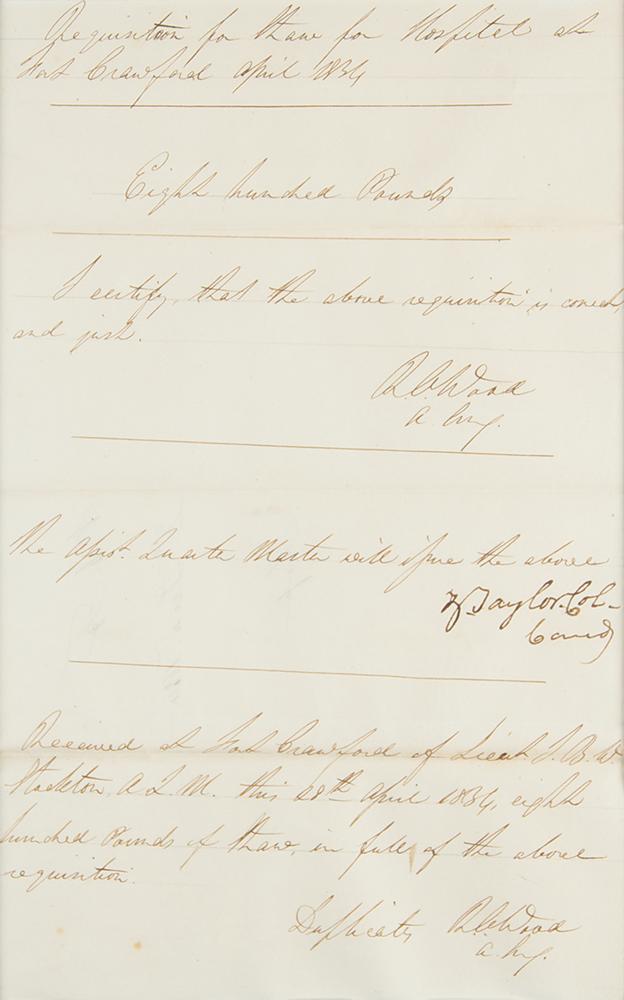 Requisition for Straw for Hospital at
Fort Crawford April 1834
Eight hundred Pounds
I certify, that the above requisition is correct,
and just.
R.C. Wood
A. Surg.
The Assist. Quarter Master will issue the above
Z. Taylor Col.
Comdg
Received at Fort Crawford of Lieut. T. B. W
Stockton, A.Q.M. this 28th April 1834, eight
hundred Pounds of Straw, in full, of the above
requisition.
Duplicates R.C. Wood
A. Surg.